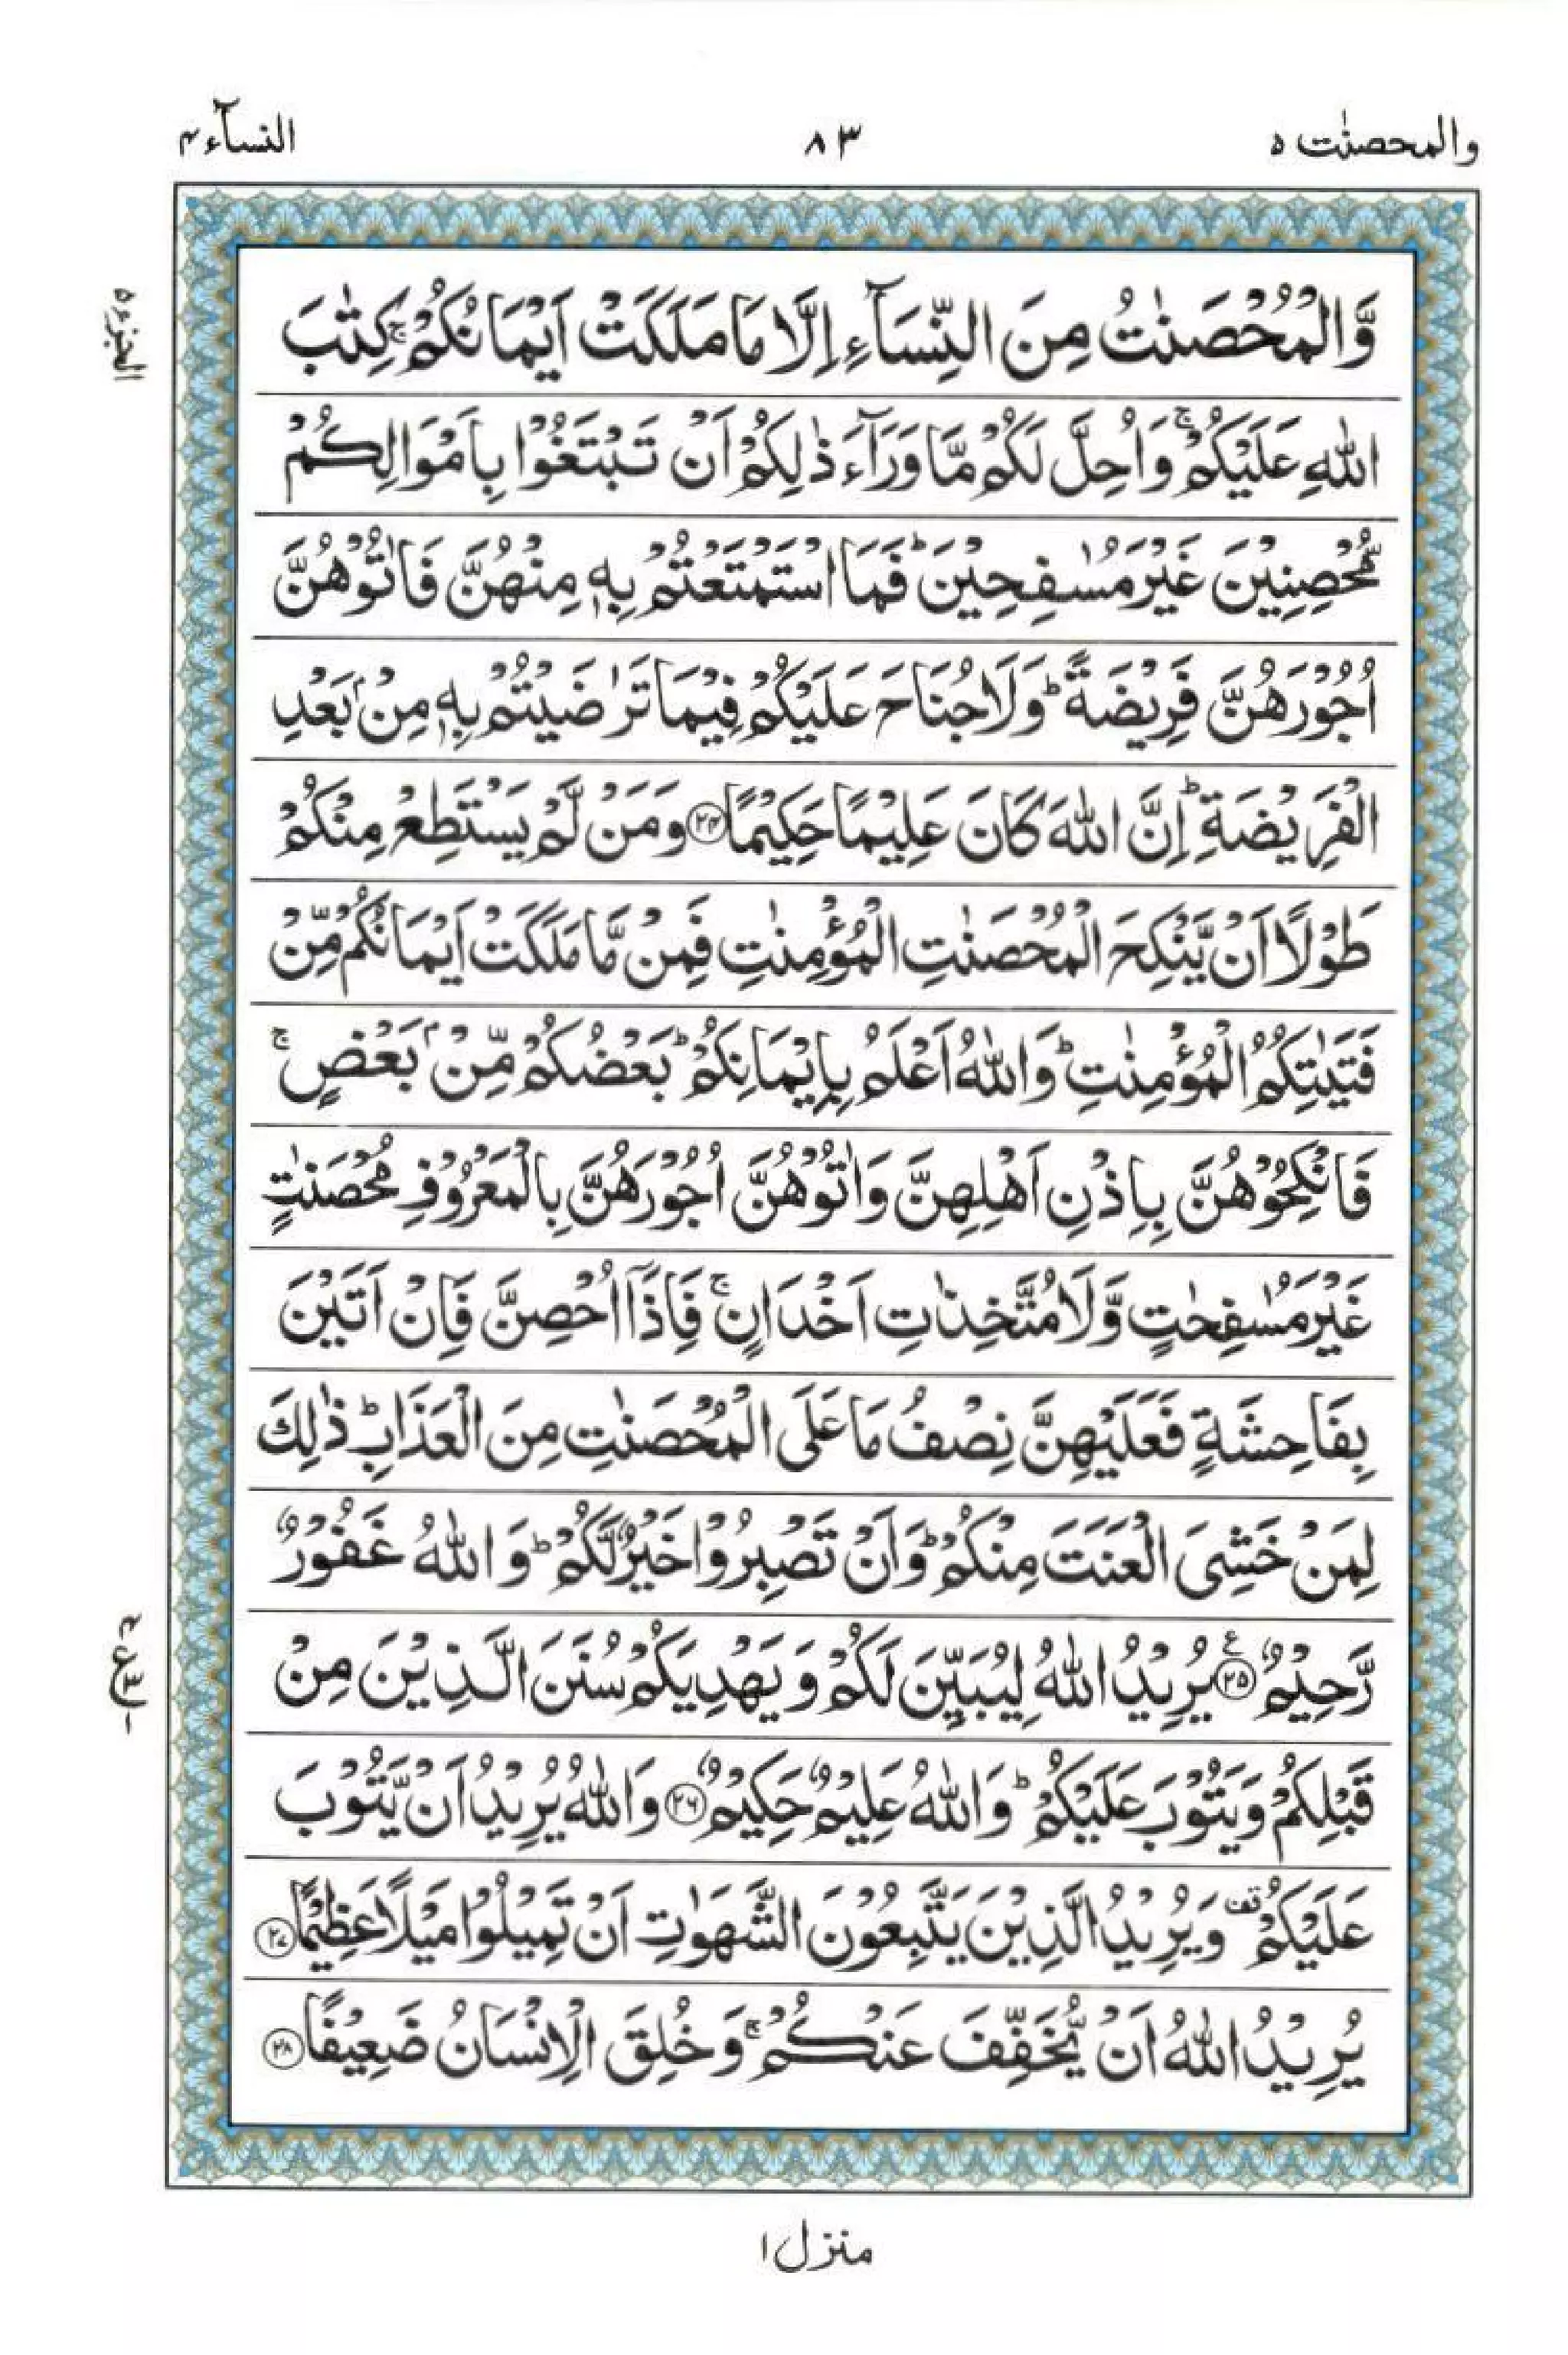 والمحصنٰت ٥
٨٣
النسآء ٤
الجزء ٥
وَّالْمُحْصَنٰتُ مِنَ النِّسَآءِ اِلَّا مَا مَلَكَتْ اَيْمَانُكُمْ ۚ كِتٰبَ
اللّٰهِ عَلَيْكُمْ ۚ وَاُحِلَّ لَكُمْ مَّا وَرَآءَ ذٰلِكُمْ اَنْ تَبْتَغُوْا بِاَمْوَالِكُمْ
مُّحْصِنِيْنَ غَيْرَ مُسٰفِحِيْنَ ؕ فَمَا اسْتَمْتَعْتُمْ بِهٖ مِنْهُنَّ فَاٰتُوْهُنَّ
اُجُوْرَهُنَّ فَرِيْضَةً ؕ وَلَا جُنَاحَ عَلَيْكُمْ فِيْمَا تَرٰضَيْتُمْ بِهٖ مِنْۢ بَعْدِ
الْفَرِيْضَةِ ؕ اِنَّ اللّٰهَ كَانَ عَلِيْمًا حَكِيْمًا ﴿٢٤﴾ وَمَنْ لَّمْ يَسْتَطِعْ مِنْكُمْ
طَوْلًا اَنْ يَّنْكِحَ الْمُحْصَنٰتِ الْمُؤْمِنٰتِ فَمِنْ مَّا مَلَكَتْ اَيْمَانُكُمْ مِّنْ
فَتَيٰتِكُمُ الْمُؤْمِنٰتِ ؕ وَاللّٰهُ اَعْلَمُ بِاِيْمَانِكُمْ ؕ بَعْضُكُمْ مِّنْۢ بَعْضٍ ۚ
فَانْكِحُوْهُنَّ بِاِذْنِ اَهْلِهِنَّ وَاٰتُوْهُنَّ اُجُوْرَهُنَّ بِالْمَعْرُوْفِ مُحْصَنٰتٍ
غَيْرَ مُسٰفِحٰتٍ وَّلَا مُتَّخِذٰتِ اَخْدَانٍ ۚ فَاِذَآ اُحْصِنَّ فَاِنْ اَتَيْنَ
بِفَاحِشَةٍ فَعَلَيْهِنَّ نِصْفُ مَا عَلَى الْمُحْصَنٰتِ مِنَ الْعَذَابِ ؕ ذٰلِكَ
لِمَنْ خَشِىَ الْعَنَتَ مِنْكُمْ ؕ وَاَنْ تَصْبِرُوْا خَيْرٌ لَّكُمْ ؕ وَاللّٰهُ غَفُوْرٌ
رَّحِيْمٌ ﴿٢٥﴾ يُرِيْدُ اللّٰهُ لِيُبَيِّنَ لَكُمْ وَيَهْدِيَكُمْ سُنَنَ الَّذِيْنَ مِنْ
قَبْلِكُمْ وَيَتُوْبَ عَلَيْكُمْ ؕ وَاللّٰهُ عَلِيْمٌ حَكِيْمٌ ﴿٢٦﴾ وَاللّٰهُ يُرِيْدُ اَنْ يَّتُوْبَ
عَلَيْكُمْ قف وَيُرِيْدُ الَّذِيْنَ يَتَّبِعُوْنَ الشَّهَوٰتِ اَنْ تَمِيْلُوْا مَيْلًا عَظِيْمًا ﴿٢٧﴾
يُرِيْدُ اللّٰهُ اَنْ يُّخَفِّفَ عَنْكُمْ ۚ وَخُلِقَ الْاِنْسَانُ ضَعِيْفًا ﴿٢٨﴾
منزل ١